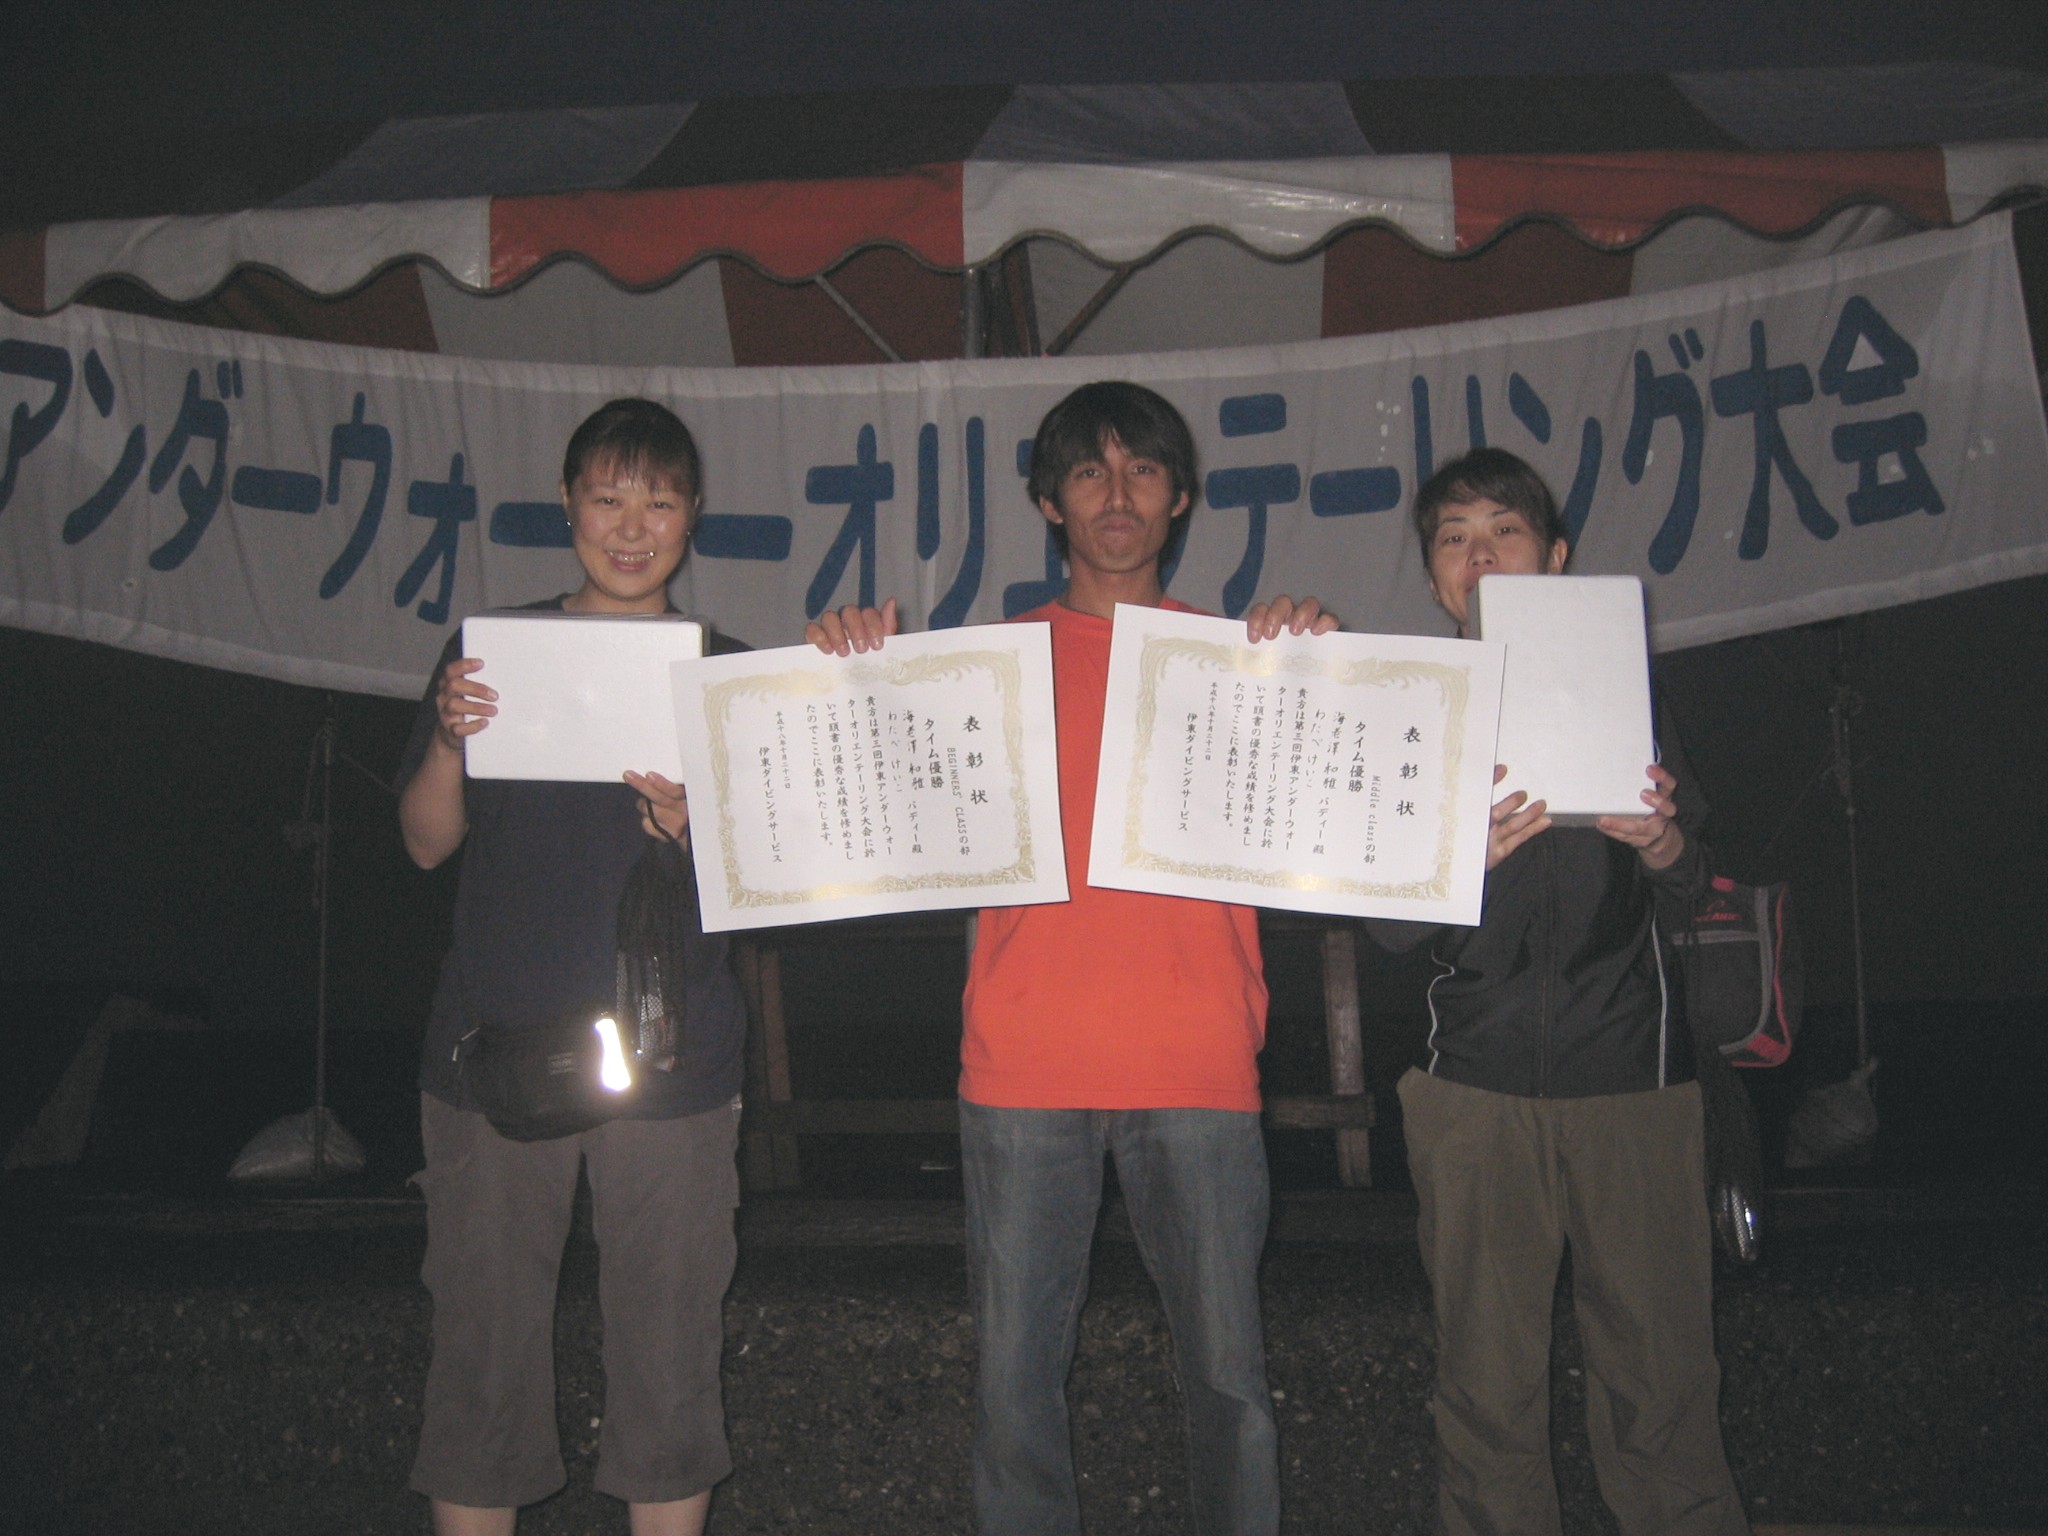 アンダーウォーターオリエンテーリング大会
表彰状
BEGINNERS' CLASSの部
タイム優勝
海老澤 和雅 バディー殿
わたべ けいこ
貴方は第三回伊東アンダーウォー
ターオリエンテーリング大会に於
いて頭書の優秀な成績を修めまし
たのでここに表彰いたします。
平成十八年十月二十二日
伊東ダイビングサービス
表彰状
Middle classの部
タイム優勝
海老澤 和雅 バディー殿
わたべ けいこ
貴方は第三回伊東アンダーウォー
ターオリエンテーリング大会に於
いて頭書の優秀な成績を修めまし
たのでここに表彰いたします。
平成十八年十月二十二日
伊東ダイビングサービス